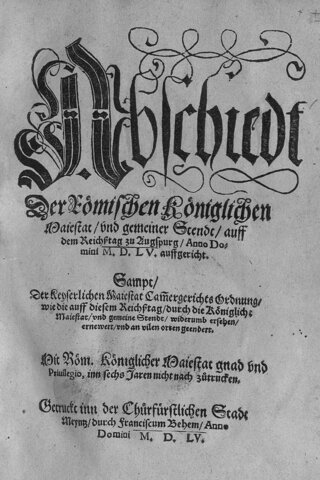 Abschiedt
Der Römischen Königlichen
Maiestat / vnd gemeiner Stende / auff
dem Reichßtag zu Augspurg / Anno Do-
mini M. D. LV. auffgericht.
Sampt /
Der Keyserlichen Maiestat Cam̃ergerichts Ordnung /
wie die auff diesem Reichßtag / durch die Königliche
Maiestat / vnd gemeine Stende / widerumb ersehen /
ernewert / vnd an vilen orten geendert.
Mit Röm. Königlicher Maiestat gnad vnd
Priuilegio, inn sechs Jaren nicht nach zůtrucken.
Getruckt inn der Churfürstlichen Stadt
Meyntz / durch Franciscum Behem / Anno
Domini M. D. LV.